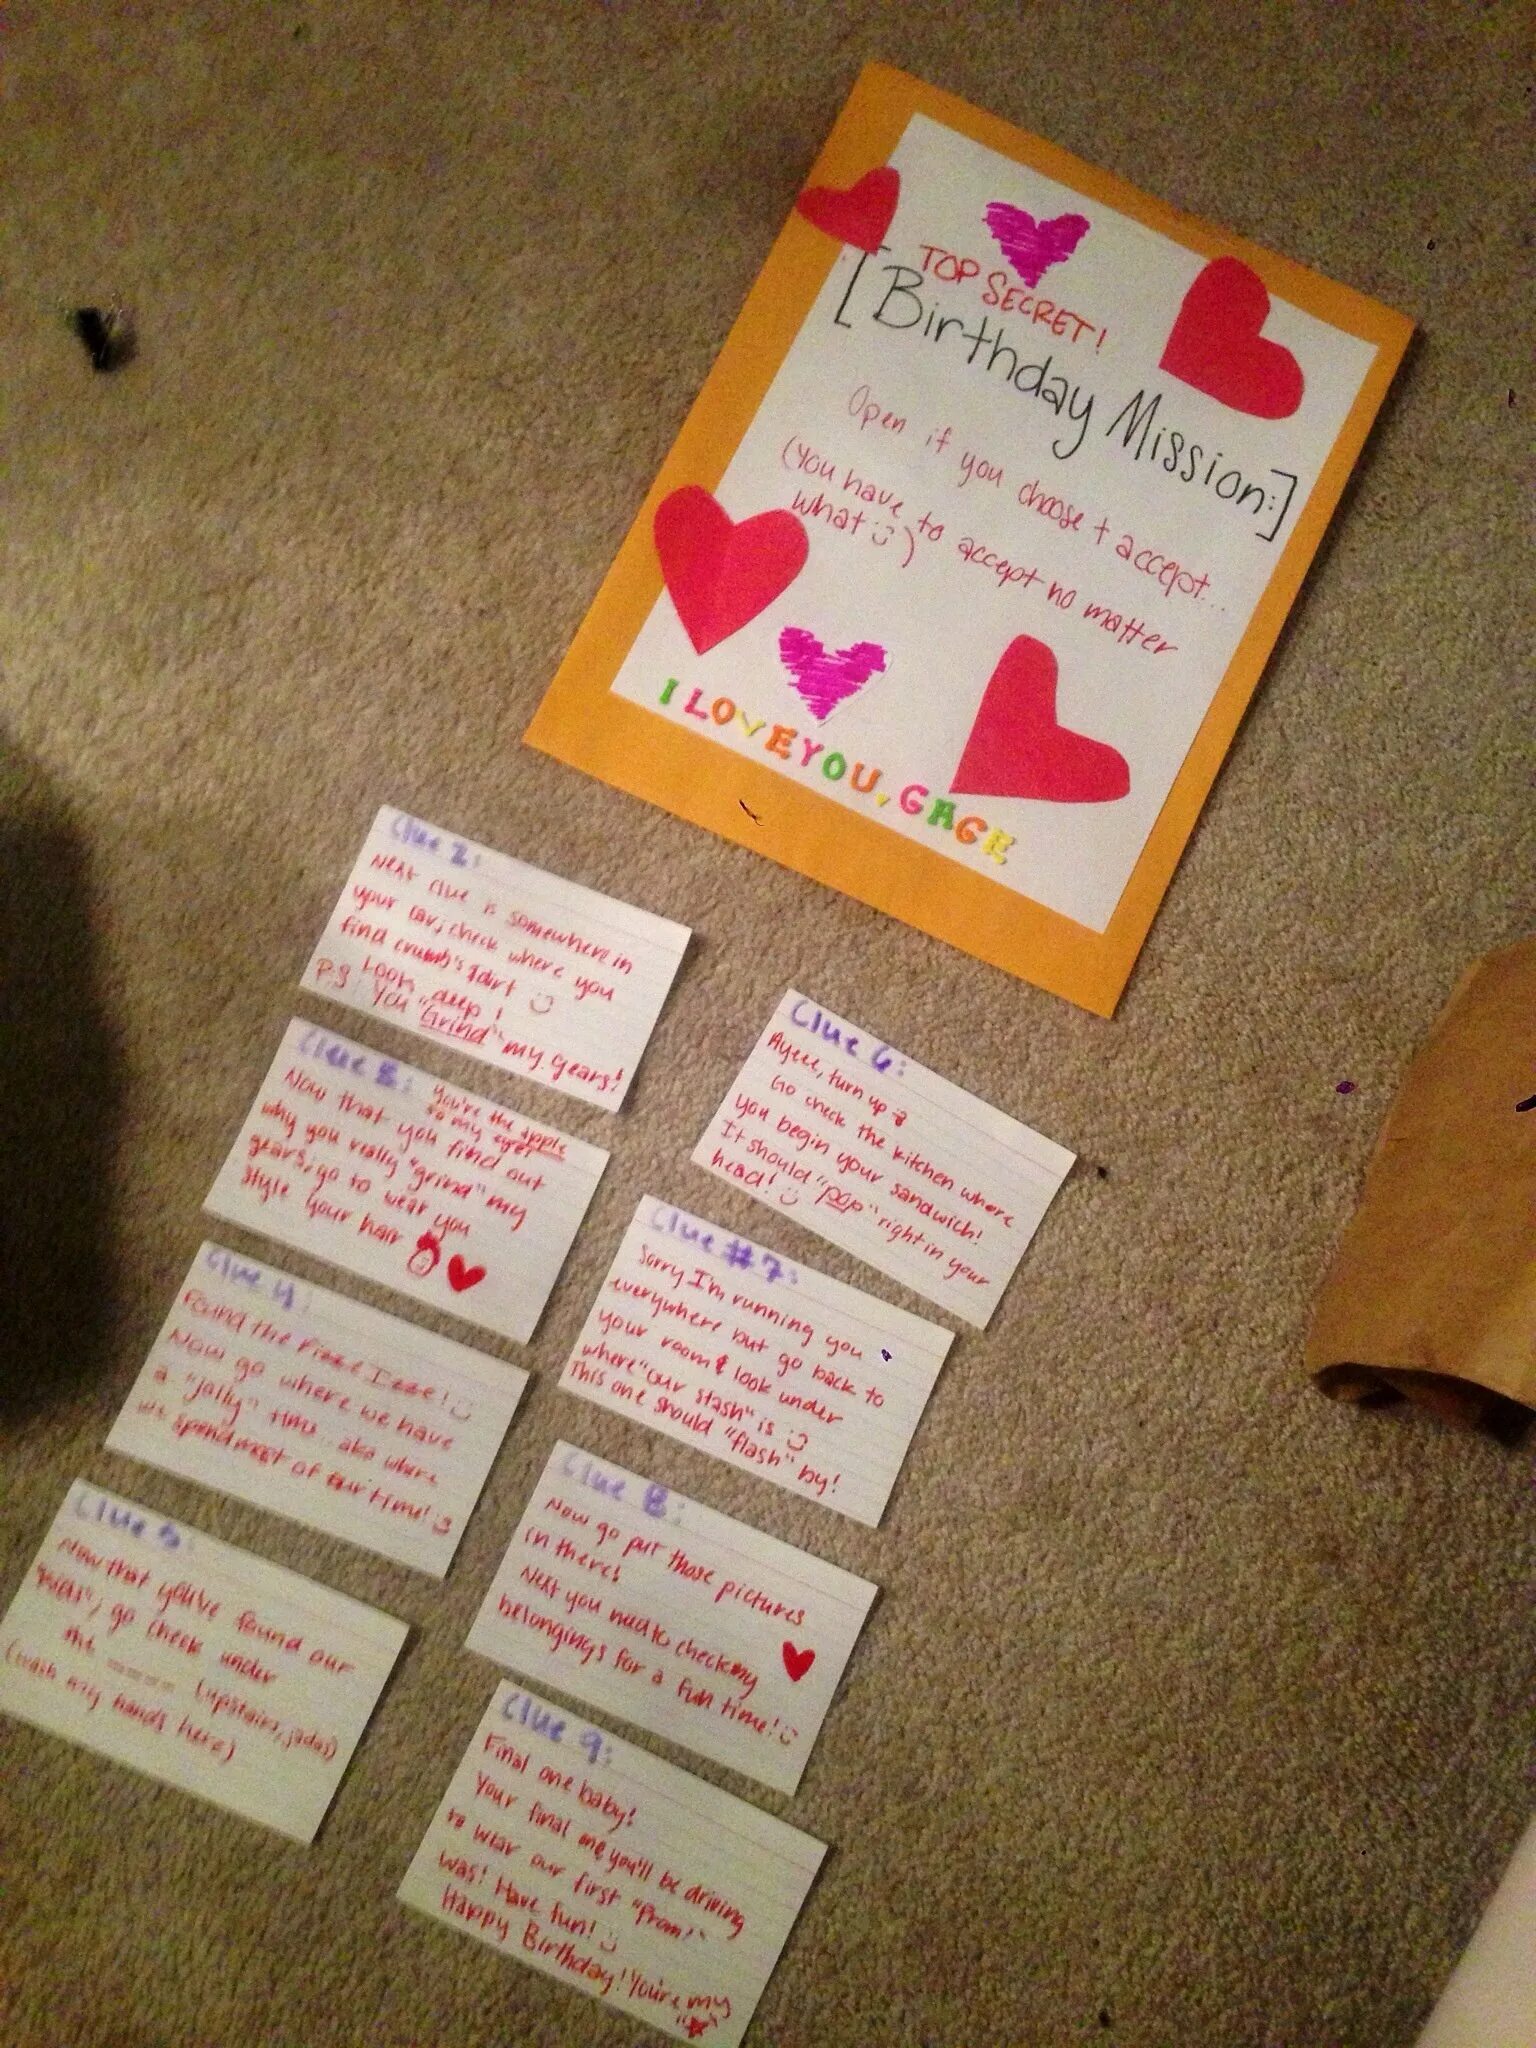 TOP SECRET!
[Birthday Mission:]
Open if you choose + accept...
(You have to accept no matter
what :))
I LOVE YOU, GAGE
Clue 2:
Next clue is somewhere in
your car, check where you
find crumb's & dirt :)
Look deep!
P.S You "Grind" my gears!
Clue 3:
You're the apple
to my eye!
Now that you find out
why you really "grind" my
gears, go to wear you
style your hair
Clue 4:
Found the Fizze Izze! :)
Now go where we have
a "jolly" time.. aka where
we spend most of our time! :)
Clue 5:
Now that you've found our
"kids", go check under
the ---- (upstairs, jadas)
(wash my hands here)
Clue 6:
Ayeee, turn up
Go check the kitchen where
you begin your sandwich!
It should "pop" right in your
head! :)
Clue #7:
Sorry I'm running you
everywhere but go back to
your room & look under
where "our stash" is :)
This one should "flash" by!
Clue 8:
Now go put those pictures
in there!
Next you need to check my
belongings for a fun time! :)
Clue 9:
Final one baby!
Your final one, you'll be driving
to wear our first "prom"
was! Have fun! :)
Happy Birthday! You're my